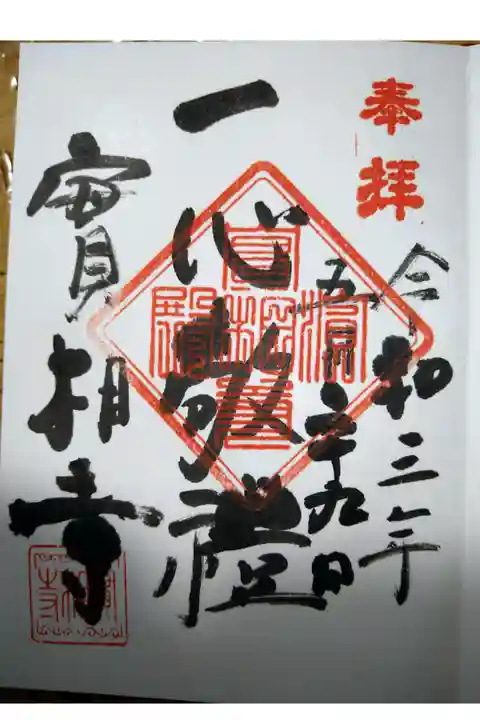 奉拝
令和三年
五月二十九日
一心敬禮
實相寺